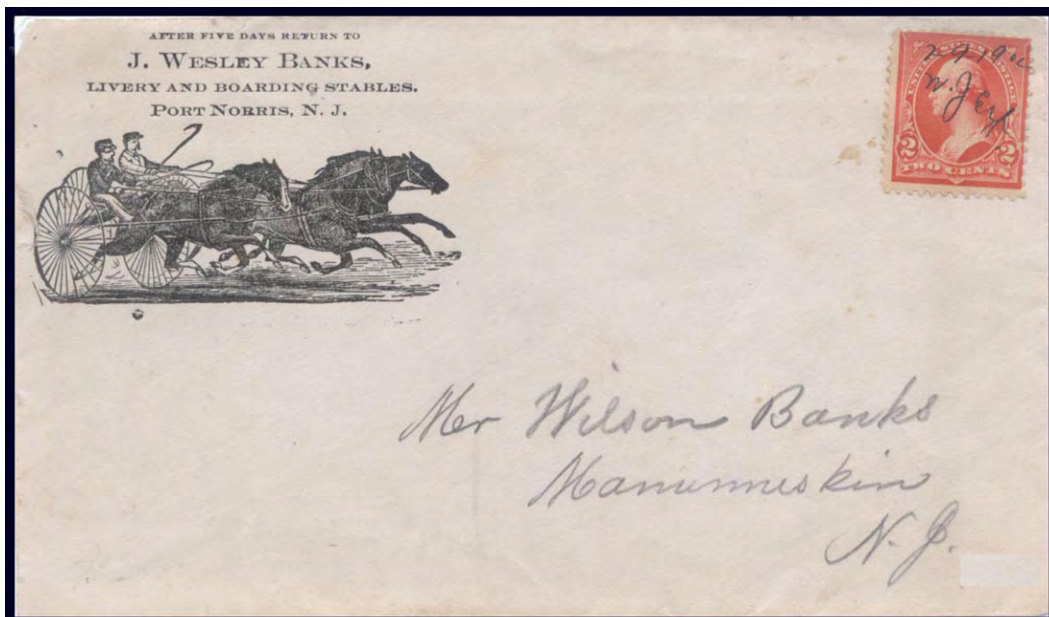 AFTER FIVE DAYS RETURN TO
J. WESLEY BANKS,
LIVERY AND BOARDING STABLES.
PORT NORRIS, N. J.
UNITED STATES POSTAGE
2 2
TWO CENTS
Mr Wilson Banks
Manumuskin
N. J.